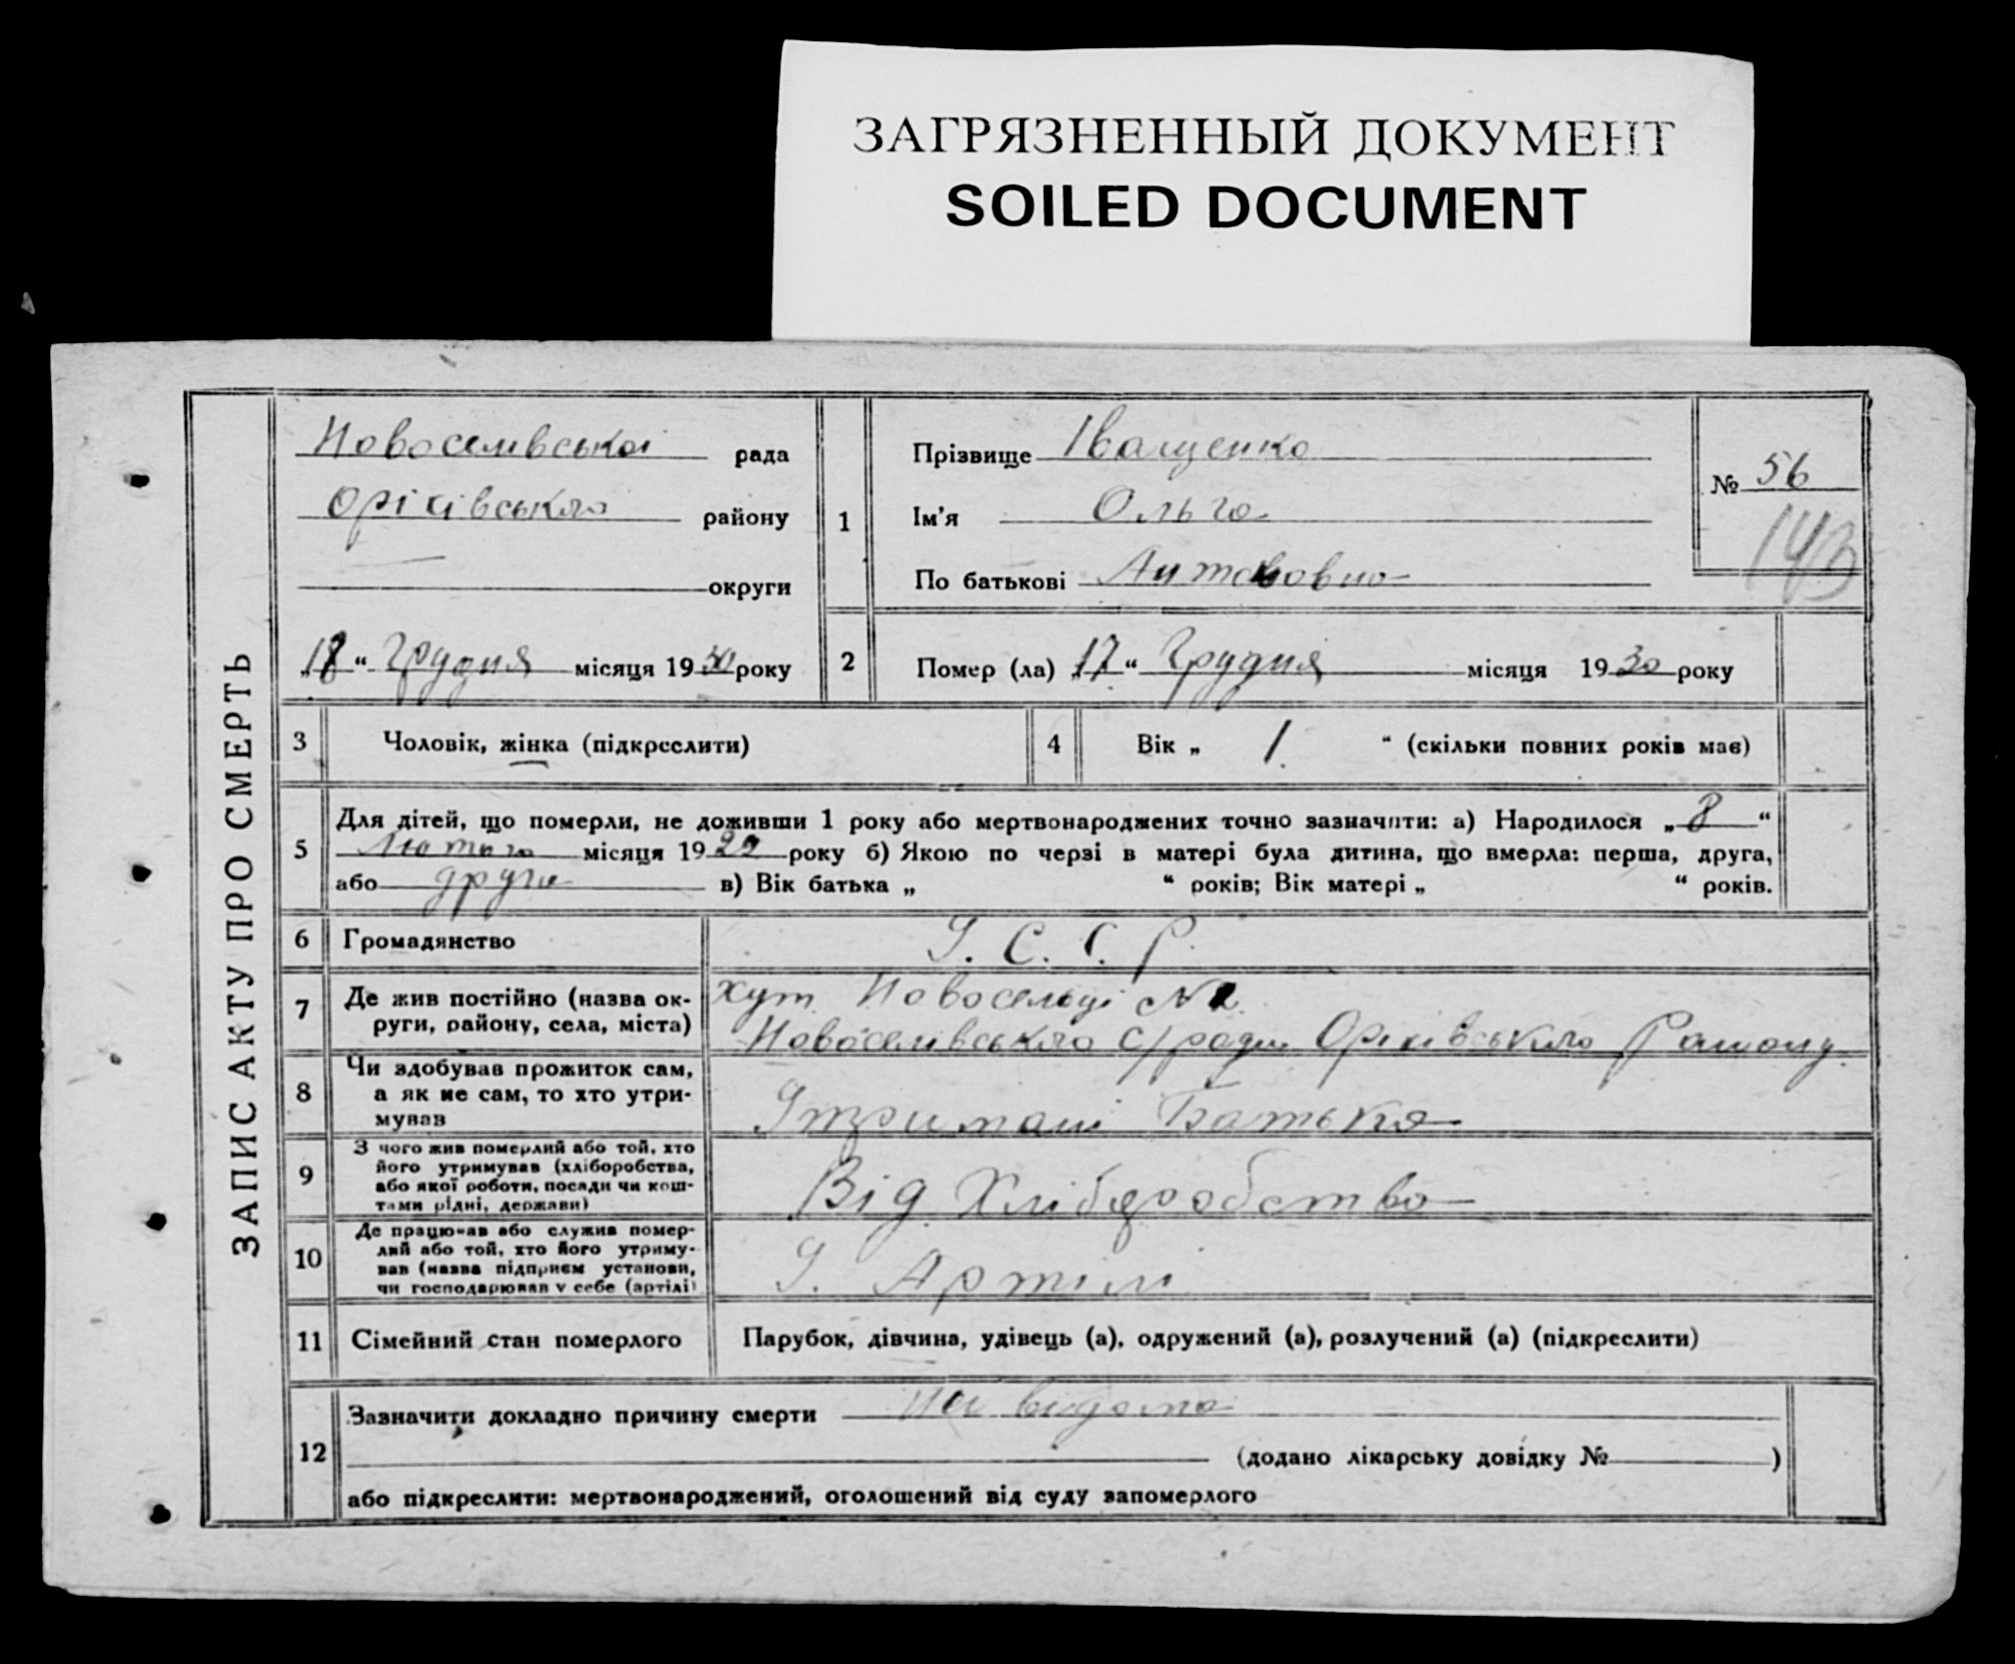 ЗАГРЯЗНЕННЫЙ ДОКУМЕНТ
SOILED DOCUMENT
ЗАПИС АКТУ ПРО СМЕРТЬ
Новоселівської рада
Оріхівського району
округи
„18“ Грудня місяця 1930 року
1
Прізвище Іващенко
Ім'я Ольга
По батькові Антоновна
№ 56
143
2
Помер (ла) „17“ Грудня місяця 1930 року
3 Чоловік, жінка (підкреслити)
4 Вік „ 1 “ (скільки повних років мав)
5 Для дітей, що померли, не доживши 1 року або мертвонароджених точно зазначити: а) Народилося „8“
Лютого місяця 1929 року б) Якою по черзі в матері була дитина, що вмерла: перша, друга,
або друга в) Вік батька „ “ років; Вік матері „ “ років.
6 Громадянство У.С.С.Р.
7 Де жив постійно (назва ок-
руги, району, села, міста)
хут. Новосельці №
Новоселівського с/ради Оріхівського Району
8 Чи здобував прожиток сам,
а як не сам, то хто утри-
мував
Утримані Батька
9 З чого жив померлий або той, хто
його утримував (хліборобства,
або якої роботи, посади чи кош-
тами рідні, держави)
Від Хліборобство
10 Де працював або служив помер-
лий або той, хто його утриму-
вав (назва підприєм установи,
чи господарював у себе (артілі)
У. Артілі
11 Сімейний стан померлого Парубок, дівчина, удівець (а), одружений (а), розлучений (а) (підкреслити)
12 Зазначити докладно причину смерти Не видома
(додано лікарську довідку № )
або підкреслити: мертвонароджений, оголошений від суду запомерлого